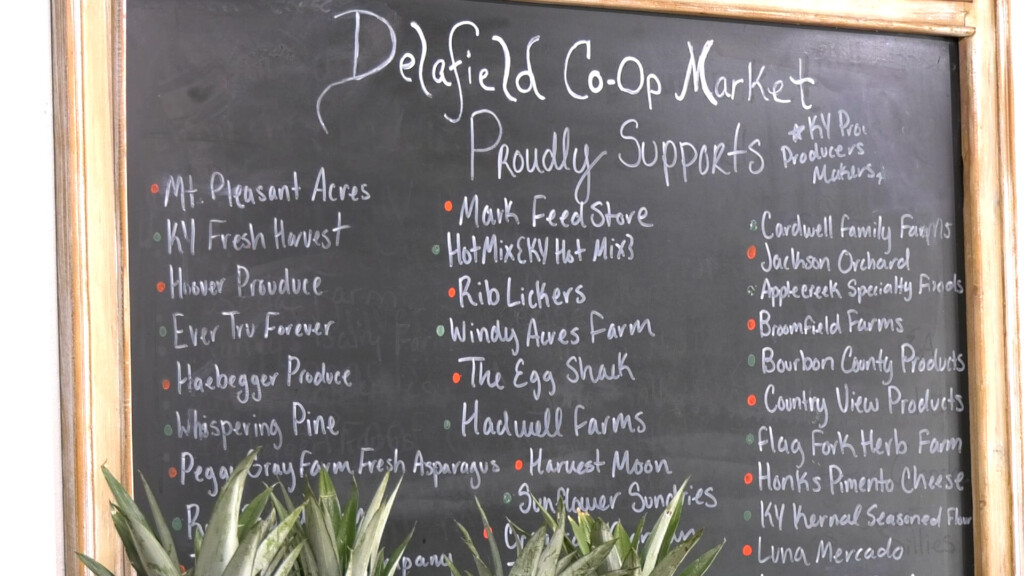 Delafield Co-Op Market
Proudly Supports
*KY Pro
Producers
Makers
Mt. Pleasant Acres
KY Fresh Harvest
Hoover Prouduce
Ever Tru Forever
Haebegger Produce
Whispering Pine
Peggy Gray Farm Fresh Asparagus
Mark Feed Store
Hot Mix {KY Hot Mix}
Rib Lickers
Windy Acres Farm
The Egg Shack
Hadwell Farms
Harvest Moon
Sunflower Sundries
Cardwell Family Farms
Jackson Orchard
Applecreek Specialty Foods
Broomfield Farms
Bourbon County Products
Country View Products
Flag Fork Herb Farm
Honks Pimento Cheese
KY Kernal Seasoned Flour
Luna Mercado